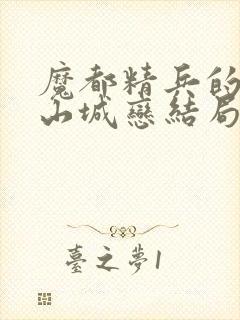 魔都精兵的
山城戀結局
臺之夢1